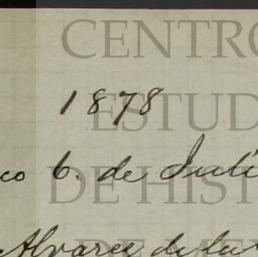 CENTRO
1878
ESTUD
co 6. de Juli
DE HIST
Alvarez de la